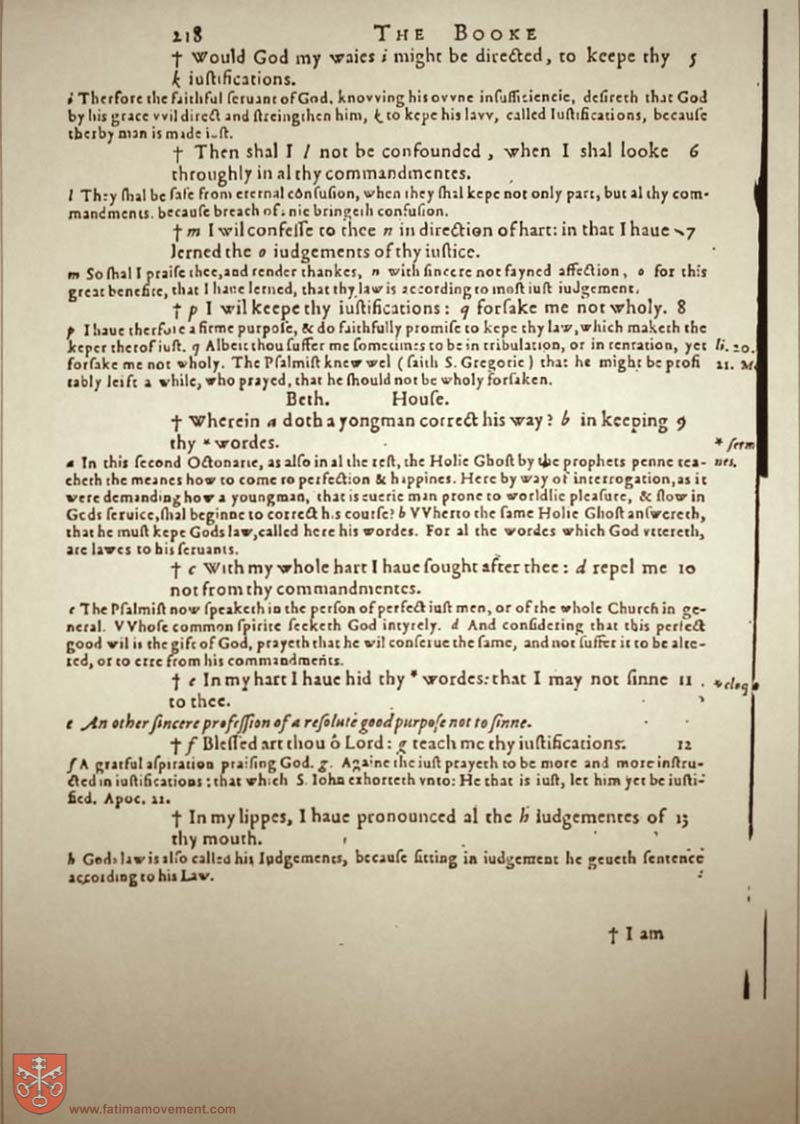 218 THE BOOKE
† Would God my waies i might be directed, to keepe thy 5
k iustifications.
i Therfore the faithful seruant of God, knovving his ovvne insufficiencie, desireth that God
by his grace vvil direct and streingthen him, k to kepe his lavv, called Iustifications, because
therby man is made iust.
† Then shal I l not be confounded, when I shal looke 6
throughly in al thy commandmentes.
l They shal be safe from eternal confusion, when they shal kepe not only part, but al thy com-
mandments. because breach of anie bringeth confusion.
† m I wil confesse to thee n in direction of hart: in that I haue 7
lerned the o iudgements of thy iustice.
m So shal I praise thee, and render thankes, n with sincere not fayned affection, o for this
great benefite, that I haue lerned, that thy law is according to most iust iudgement.
† p I wil keepe thy iustifications: q forsake me not wholy. 8
p I haue therfore a firme purpose, & do faithfully promise to kepe thy law, which maketh the
keper therof iust. q Albeit thou suffer me sometimes to be in tribulation, or in tentation, yet li. 20.
forsake me not wholy. The Psalmist knew wel (saith S. Gregorie) that he might be profi 21. M
tably left a while, who prayed, that he should not be wholy forsaken.
Beth. House.
† Wherein a doth a yongman correct his way? b in keeping 9
thy * wordes. * serm
a In this second Octonarie, as also in al the rest, the Holie Ghost by the prophets penne tea- nes.
cheth the meanes how to come to perfection & happines. Here by way of interrogation, as it
were demanding how a youngman, that is euerie man prone to worldlie pleasure, & slow in
Gods seruice, shal beginne to correct his course? b VVherto the same Holie Ghost answereth,
that he must kepe Gods law, called here his wordes. For al the wordes which God vttereth,
are lawes to his seruants.
† c With my whole hart I haue sought after thee: d repel me 10
not from thy commandmentes.
c The Psalmist now speaketh in the person of perfect iust men, or of the whole Church in ge-
neral. VVhose common spirite seeketh God intyrely. d And considering that this perfect
good wil is the gift of God, prayeth that he wil conserue the same, and not suffer it to be alte-
red, or to erre from his commandments.
† e In my hart I haue hid thy * wordes: that I may not sinne 11 . * eloq
to thee.
e An other sincere profession of a resolute good purpose not to sinne.
† f Blessed art thou ô Lord: g teach me thy iustifications. 12
f A grateful aspiration praising God. g. Againe the iust prayeth to be more and more instru-
cted in iustifications: that which S. Iohn exhorteth vnto: He that is iust, let him yet be iusti-
fied. Apoc. 22.
† In my lippes, I haue pronounced al the h iudgementes of 13
thy mouth.
h Gods law is also called his Iudgements, because sitting in iudgement he geueth sentence
according to his Law.
† I am
www.fatimamovement.com